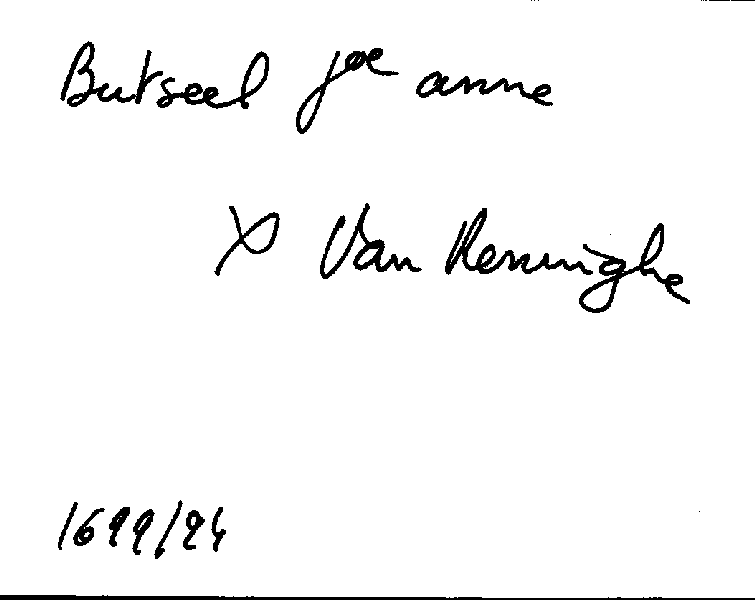 Butseel joe anne
x Van Renninghe
1699/94